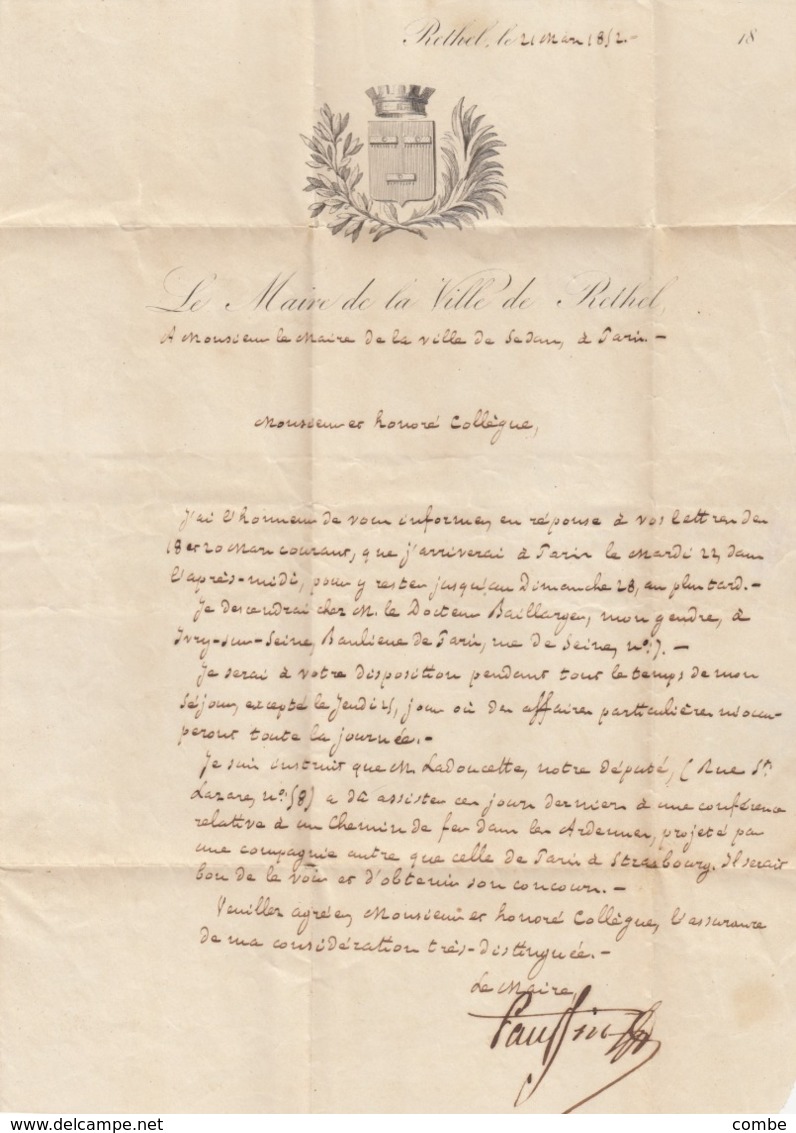 Rethel, le 21 Mars 1852.- 18
Le Maire de la Ville de Rethel,
A Monsieur le Maire de la ville de Sedan, à Paris.-
Monsieur et honoré Collègue,
J'ai l'honneur de vous informer, en réponse à vos lettres des
18 et 20 Mars courant, que j'arriverai à Paris le Mardi 23, dans
l'après-midi, pour y rester jusqu'au Dimanche 28, au plus tard.-
Je descendrai chez M. le Docteur Baillarger, mon gendre, à
Ivry-sur-Seine, Banlieue de Paris, rue de Seine, n°: 7.-
Je serai à votre disposition pendant tout le temps de mon
séjour, excepté le Jeudi 25, jour où des affaires particulières m'occu-
peront toute la journée.-
Je suis instruit que M. Ladoucette, notre député, (Rue St.
Lazare, n°: 58) a dû assister ces jours derniers à une conférence
relative à un Chemin de fer dans les Ardennes, projeté par
une compagnie autre que celle de Paris à Strasbourg. Il serait
bon de le voir et d'obtenir son concours.-
Veuillez agréer, Monsieur et honoré Collègue, l'assurance
de ma considération très-distinguée.-
Le Maire,
delcampe.net
combe